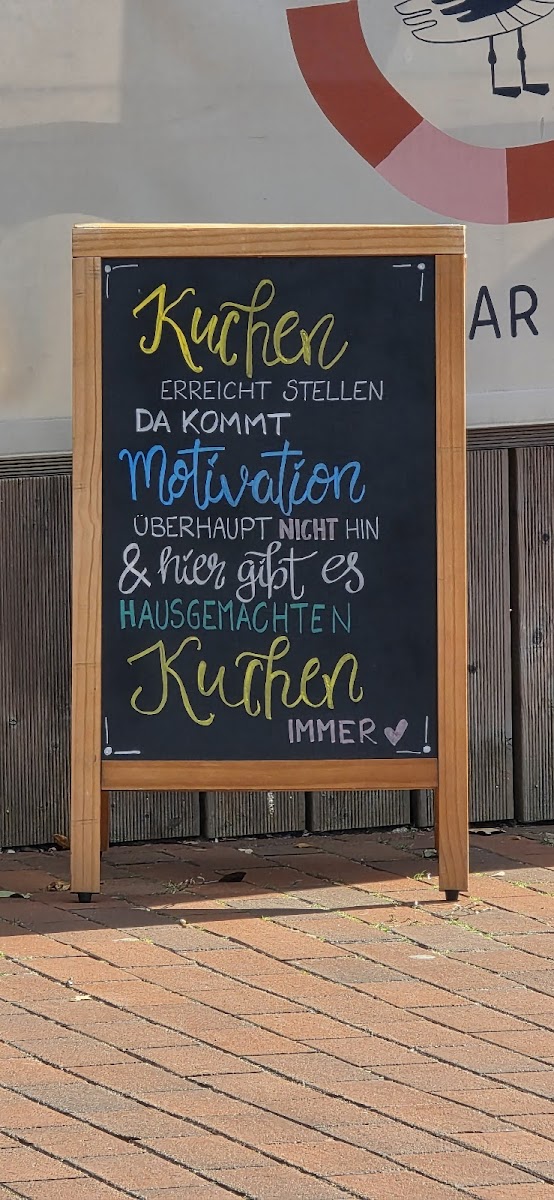 Kuchen
ERREICHT STELLEN
DA KOMMT
Motivation
ÜBERHAUPT NICHT HIN
& hier gibt es
HAUSGEMACHTEN
Kuchen
IMMER
AR